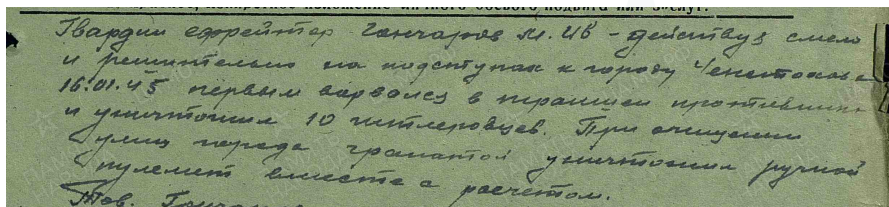 конкретное изложение личного боевого подвига или заслуг.
Гвардии ефрейтор Ганчаров М. Ив - действуя смело
и решительно на подступах к городу Ченстохове
16.01.45 первым ворвался в траншеи противника
и уничтожил 10 гитлеровцев. При очищении
улиц города гранатой уничтожил ручной
пулемет вместе с расчетом.
Тов.